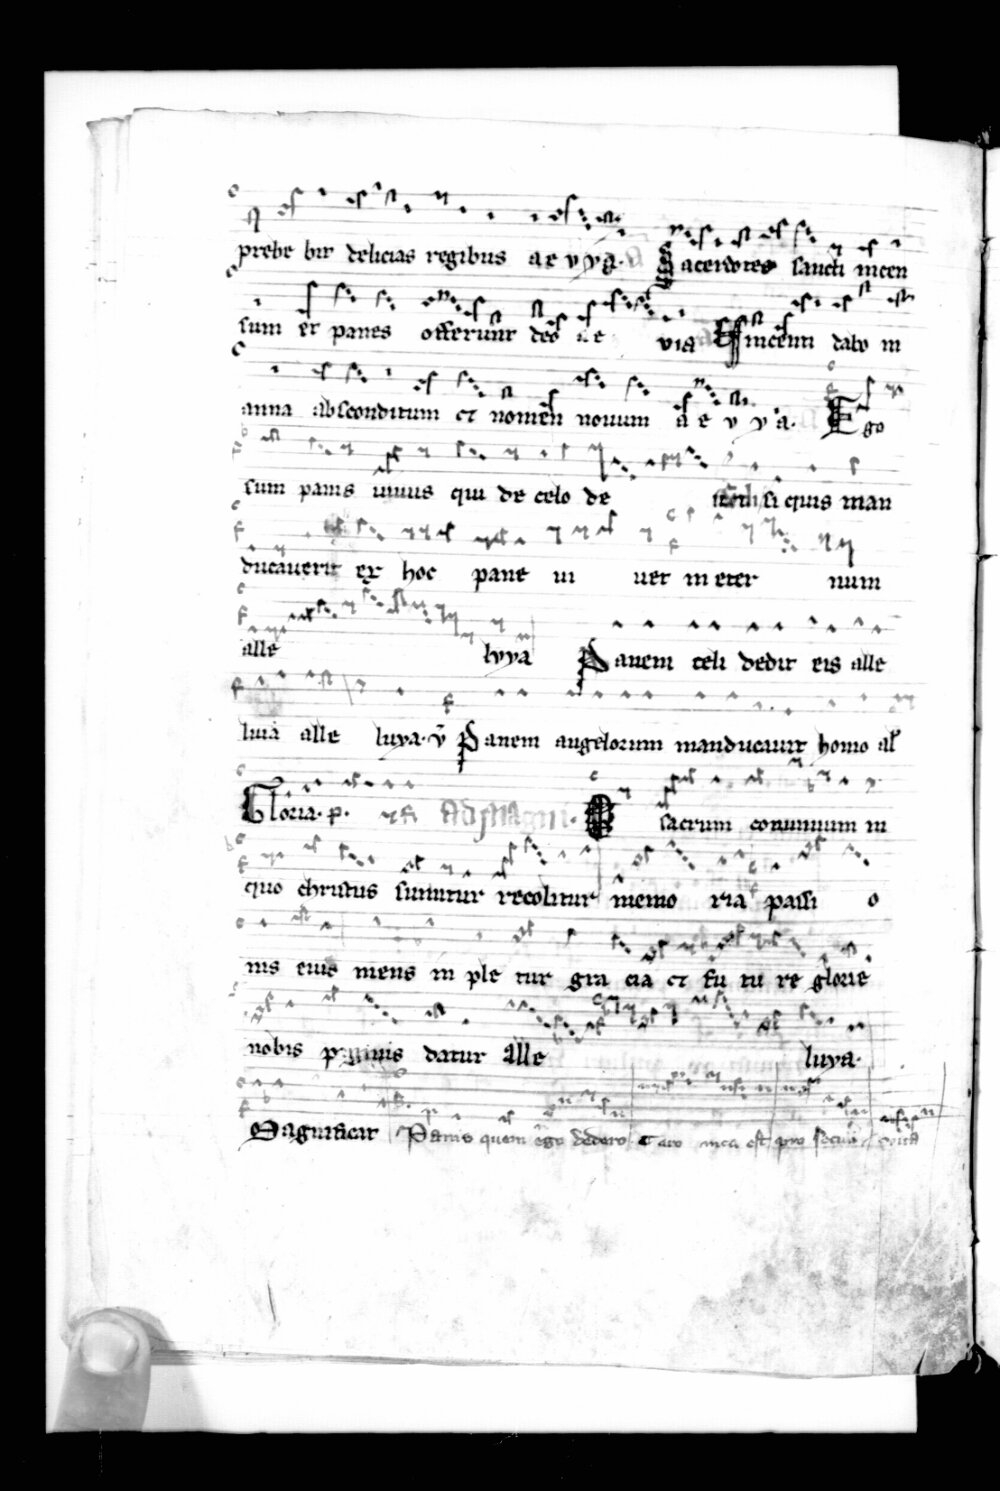 prebe bit delicias regibus a e v y a. Sacerdotes sancti incen
sum et panes offerunt deo a e via Uincenti dabo m
anna absconditum et nomen nouum a e v y a. Ego
sum panis uiuus qui de celo de si quis man
ducauerit ex hoc pane ui uet in eter num
alle luya Panem celi dedit eis alle
luia alle luya. v Panem angelorum manducauit homo al
Gloria. p. Ad magn. O sacrum conuiuium in
quo christus sumitur recolitur memo ria passi o
nis eius mens in ple tur gra cia et fu tu re glorie
nobis pignus datur alle luya.
Magnificat Panis quem ego dedero caro mea est pro seculi vita